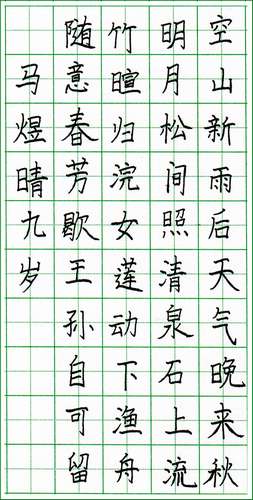 空山新雨后天气晚来秋
明月松间照清泉石上流
竹暄归浣女莲动下渔舟
随意春芳歇王孙自可留
马煜晴九岁